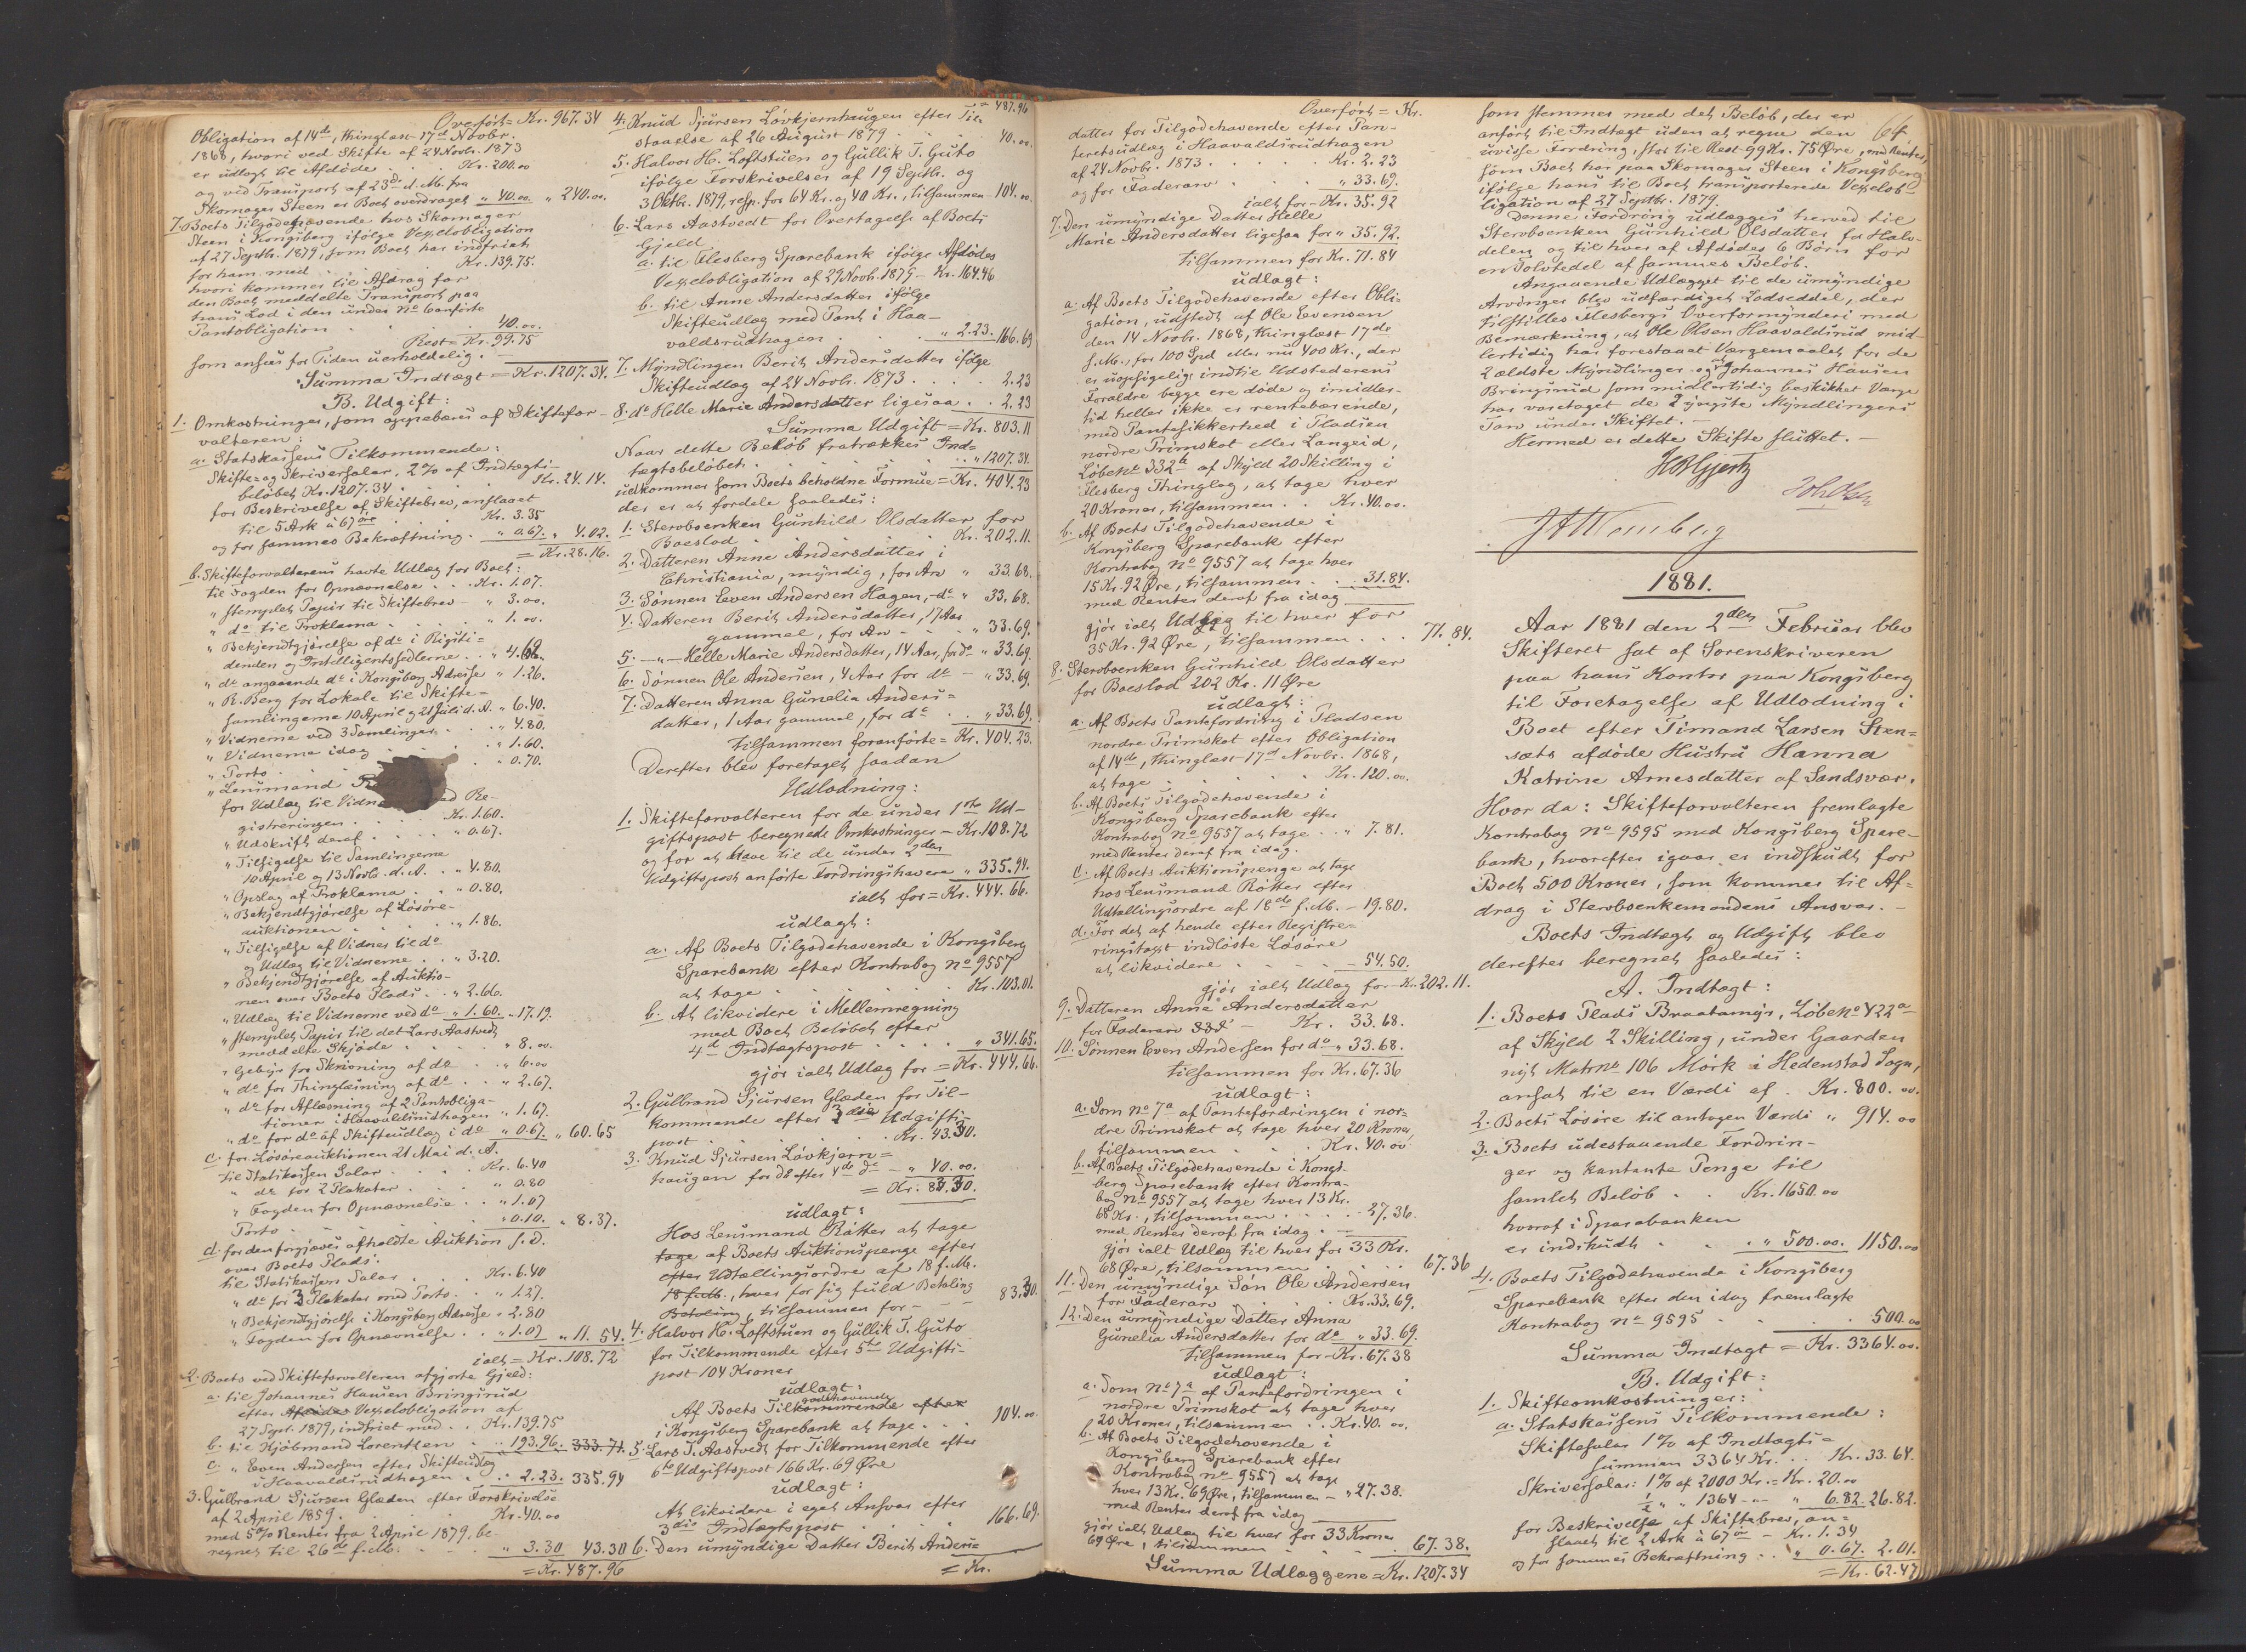 Overført = Kr. 967.34
Obligation af 14de, thinglæst 17de Novbr.
1868, hvori ved Skifte af 24 Novbr. 1873
er udlagt til Afdøde . . Kr. 200.00
og ved Transport af 23de d. M. fra
Skomager Steen er Boet overdraget " 40.00 " 240.00
7. Boets Tilgodehavende hos Skomager
Steen i Kongsberg ifølge Vexelobligation
af 27 Septbr. 1879, som Boet har indfriet
for ham med . . Kr. 139.75.
hvori kommer til Afdrag for
den Boet meddelte Transport paa
hans Lod i den under No 6 anførte
Pantobligation . . 40.00
Rest = Kr. 99.75
som ansees for Tiden uerholdelig. —
Summa Indtægt = Kr. 1207.34.
B. Udgift:
1. Omkostninger, som oppebæres af Skiftefor-
valteren:
a. Statskassens Tilkommende:
Skifte- og Skriversalær, 2% af Indtægts-
beløbet Kr. 1207.34 . . Kr. 24.14.
for Beskrivelse af Skiftebrev, anslaaet
til 5 Ark à 67 øre . . Kr. 3.35
og for sammes Bekræftning . " 0.67. " 4.02.
= Kr. 28.16.
b. Skifteforvalterens havte Udlæg for Boet:
til Fogden for Opnævnelse . . Kr. 1.07.
" stemplet Papir til Skiftebrev — " 3.00.
" do til Proklama . . " 1.00.
" Bekjendtgjørelse af do i Rigsti-
denden og Intelligentssedlerne . . " 4.62.
" do angaaende do i Kongsberg Adresse " 1.26.
" R. Berg for Lokale til Skifte-
samlingerne 10 April og 21 Juli d. A. . " 6.40.
" Vidnerne ved 3 Samlinger . . " 4.80.
" Vidnerne idag . . " 1.60.
" Porto . . " 0.70.
" Lensmand
for Udlæg til Vidn ed Re-
gistreringen . . Kr. 1.60.
" Udskrift deraf . . " 0.67.
" Tilsigelse til Samlingerne
10 April og 13 Novbr. d. A. . " 4.80.
" Opslag af Proklama . . " 0.80.
" Bekjendtgjørelse af Løsøre-
auktionen . . " 1.86.
" Tilsigelse af Vidner til do
og Udlæg til Vidnerne . . " 3.20.
" Bekjendtgjørelse af Auktio-
nen over Boets Plads . . " 2.66.
" Udlæg til Vidnerne ved do " 1.60. " 17.19.
" stemplet Papir til det Lars Aastvedt
meddelte Skjøde . . " 8.00.
" Gebyr for Skrivning af do . . " 6.00
" do for Thinglæsning af do . . " 2.67.
" do for Aflæsning af 2 Pantobliga-
tioner i Haavaldsrudhagen . " 1.67.
" do for do af Skifteudlæg i do . " 0.67. " 60.65
c. for Løsøreauktionen 21 Mai d. A.
til Statskassen Salær . . Kr. 6.40
" do for 2 Plakater . . " 0.80
" Fogden for Opnævnelse . . " 1.07
Porto . . " 0.10. " 8.37.
d. for den forgjæves afholdte Auktion s. D.
over Boets Plads:
til Statskassen Salær . . Kr. 6.40
" do for 3 Plakater med Porto . . " 1.27.
" Bekjendtgjørelse i Kongsberg Adresse . " 2.80
" Fogden for Opnævnelse . . " 1.07 " 11.54.
ialt = Kr. 108.72
2. Boets ved Skifteforvalteren afgjorte Gjeld:
a. til Johannes Hansen Bringsrud
efter Afdødes Vexelobligation af
27 Sept. 1879, indfriet med . . Kr. 139.75
b. til Kjøbmand Lorentzen . . " 193.96. 333.71.
c. " Even Andersen efter Skifteudlæg
i Haavaldsrudhagen . . " 2.23. 335.94
3. Gulbrand Sjursen Glæden efter Forskrivelse
af 2 April 1859 . . Kr. 40.00
med 5% Renter fra 2 April 1879, be-
regnet til 26de f. M. . . " 3.30 43.30
= Kr. 487.96
= 487.96
4. Knud Sjursen Løvkjernhaugen efter Til-
staaelse af 26 August 1879 . . 40.00.
5. Halvor H. Loftstuen og Gullik T. Guto
ifølge Forskrivelser af 19 Septbr. og
3 Oktbr. 1879, resp. for 64 Kr. og 40 Kr., tilsammen — 104.00.
6. Lars Aastvedt for Overtagelse af Boets
Gjeld
a. til Flesberg Sparebank ifølge Afdødes
Vexelobligation af 29 Novbr. 1879 — Kr. 164.46
b. til Anne Andersdatter ifølge
Skifteudlæg med Pant i Haa-
valdsrudhagen . . " 2.23. 166.69
7. Myndlingen Berit Andersdatter ifølge
Skifteudlæg af 24 Novbr. 1873 . . . . 2.23
8. do Helle Marie Andersdatter ligesaa . . 2.23
Summa Udgift = Kr. 803.11
Naar dette Beløb fratrækkes Ind-
tægtsbeløbet . . " 1207.34.
udkommer som Boets beholdne Formue = Kr. 404.23
der er at fordele saaledes:
1. Stervboenken Gunhild Olsdatter for
Boeslod . . Kr. 202.11.
2. Datteren Anne Andersdatter i
Christiania, myndig, for Arv " 33.68.
3. Sønnen Even Andersen Hagen, — do " 33.68.
4. Datteren Berit Andersdatter, 17 Aar
gammel, for Arv — . . " 33.69.
5. —"— Helle Marie Andersdatter, 14 Aar, for do " 33.69.
6. Sønnen Ole Andersen, 4 Aar for do — " 33.69.
7. Datteren Anna Gunelia Anders-
datter, 1 Aar gammel, for do . . " 33.69.
tilsammen foranførte = Kr. 404.23.
Derefter blev foretaget saadan
Udlodning:
1. Skifteforvalteren for de under 1ste Ud-
giftspost beregnede Omkostninger — Kr. 108.72
og for at have til de under 2den
Udgiftspost anførte Fordringshavere " 335.94.
ialt for = Kr. 444.66.
udlagt:
a. Af Boets Tilgodehavende i Kongsberg
Sparebank efter Kontrabog No 9557
at tage . . Kr. 103.01.
b. At likvidere i Mellemregning
med Boet Beløbet efter
4de Indtægtspost . . . . " 341.65.
gjør ialt Udlæg for = Kr. 444.66.
2. Gulbrand Sjursen Glæden for Til-
kommende efter 3die Udgifts-
post . . Kr. 43.30.
3. Knud Sjursen Løvkjern-
haugen for do efter 4de do — " 40.00.
= Kr. 83.30.
udlagt:
Hos Lensmand Røtter at tage
tage af Boets Auktionspenge efter
efter Udtællingsordre af 18 f. M.
18 f. M., hver for sig fuld Betaling
Betaling, tilsammen for — — — 83.30.
4. Halvor H. Loftstuen og Gullik T. Guto
for Tilkommende efter 5te Udgifts-
post 104 Kroner
udlagt:
godehavende
Af Boets Tilkommende efter
i Kongsberg Sparebank at tage . . . 104.00
5. Lars T. Aastvedt for Tilkommende efter
6te Udgiftspost 166 Kr. 69 Øre
udlagt:
At likvidere i eget Ansvar efter
3die Indtægtspost . . 166.69.
6. Den umyndige Datter Berit Anders-
= Kr.
Overført = Kr.
datter for Tilgodehavende efter Pan-
teretsudlæg i Haavaldsrudhagen
af 24 Novbr. 1873 . . . . Kr. 2.23
og for Faderarv . . " 33.69.
ialt for — Kr. 35.92
7. Den umyndige Datter Helle
Marie Andersdatter ligesaa for " 35.92.
tilsammen for Kr. 71.84
udlagt:
a. Af Boets Tilgodehavende efter Obli-
gation, udstedt af Ole Evensen
den 14 Novbr. 1868, thinglæst 17de
s. M., for 100 Spd eller nu 400 Kr., der
er uopsigelig indtil Udstederens
Foraldre begge ere døde og imidler-
tid heller ikke er rentebærende,
med Pantesikkerhed i Pladsen
nordre Primskot eller Langeid,
LøbeNo 332b af Skyld 20 Skilling i
Flesberg Thinglag, at tage hver
20 Kroner, tilsammen . . Kr. 40.00.
b. Af Boets Tilgodehavende i
Kongsberg Sparebank efter
Kontrabog No 9557 at tage hver
15 Kr. 92 Øre, tilsammen . . 31.84.
med Renter deraf fra idag
gjør ialt Udlæg til hver for
35 Kr. 92 Øre, tilsammen . . . 71.84.
8. Stervboenken Gunhild Olsdatter
for Boeslod 202 Kr. 11 Øre
udlagt:
a. Af Boets Pantefordring i Pladsen
nordre Primskot efter Obligation
af 14de, thinglæst 17de Novbr. 1868,
at tage . . Kr. 120.00.
b. Af Boets Tilgodehavende i
Kongsberg Sparebank efter
Kontrabog No 9557 at tage . . " 7.81.
med Renter deraf fra idag.
c. Af Boets Auktionspenge at tage
hos Lensmand Røtter efter
Udtællingsordre af 18de f. M. — 19.80.
d. For det af hende efter Registre-
ringstaxt indløste Løsøre
at likvidere . . — 54.50.
gjør ialt Udlæg for — Kr. 202.11.
9. Datteren Anne Andersdatter
for Faderarv — Kr. 33.68.
10. Sønnen Even Andersen for do " 33.68.
tilsammen for Kr. 67.36
udlagt:
a. Som No 7a af Pantefordringen i nor-
dre Primskot at tage hver 20 Kroner,
tilsammen . . Kr. 40.00
b. Af Boets Tilgodehavende i Kongs-
berg Sparebank efter Kontra-
bog No 9557 at tage hver 13 Kr.
68 Kr., tilsammen . . . 27.36.
med Renter deraf fra idag. —
gjør ialt Udlæg til hver for 33 Kr.
68 Øre, tilsammen . . 67.36
11. Den umyndige Søn Ole Andersen
for Faderarv . . Kr. 33.69.
12. Den umyndige Datter Anna
Gunelia Andersdatter for do " 33.69.
tilsammen for — Kr. 67.38
udlagt:
a. Som No 7a af Pantefordringen i
nordre Primskot at tage hver
20 Kroner, tilsammen . . Kr. 40.00.
b. Af Boets Tilgodehavende i
Kongsberg Sparebank efter
Kontrabog No 9557 at tage
hver 13 Kr. 69 Øre, tilsammen — " 27.38.
med Renter deraf fra idag
gjør ialt Udlæg til hver for 33 Kroner
69 Øre, tilsammen . . 67.38.
Summa Udlæggene = Kr. 1207.34
64
som stemmer med det Beløb, der er
anført til Indtægt uden at regne den
uvisse Fordring, stor til Rest 99 Kr. 75 Øre, med Renter,
som Boet har paa Skomager Steen i Kongsberg
ifølge hans til Boet transporterede Vexelob-
ligation af 27 Septbr. 1879.
Denne Fordring udlægges herved til
Stervboenken Gunhild Olsdatter for Halv-
delen og til hver af Afdødes 6 Børn for
en Tolvtedel af sammes Beløb.
Angaaende Udlægget til de umyndige
Arvinger blev udfærdiget Lodseddel, der
tilstilles Flesbergs Overformynderi med
Bemærkning, at Ole Olsen Haavaldsrud mid-
lertidig har forestaaet Værgemaalet for de
2 ældste Myndlinger og at Johannes Hansen
Bringsrud som midlertidig beskikket Værge
har varetaget de 2 yngste Myndlingers
Tarv under Skiftet. —
Hermed er dette Skifte sluttet. —
1881.
Aar 1881 den 2den Februar blev
Skifteret sat af Sorenskriveren
paa hans Kontor paa Kongsberg
til Foretagelse af Udlodning i
Boet efter Timand Larsen Sten-
sæts afdøde Hustru Hanna
Katrine Arnesdatter af Sandsvær.
Hvor da: Skifteforvalteren fremlagte
Kontrabog No 9595 med Kongsberg Spare-
bank, hvorefter igaar er indskudt for
Boet 500 Kroner, som kommer til Af-
drag i Stervboenkemandens Ansvar. —
Boets Indtægt og Udgift blev
derefter beregnet saaledes:
A. Indtægt:
1. Boets Plads Braatamyr, LøbeNo 422a
af Skyld 2 Skilling, under Gaarden
nyt MatrNo 106 Mørk i Hedenstad Sogn,
ansat til en Værdi af . Kr. 800.00.
2. Boets Løsøre til antagen Værdi " 914.00
3. Boets udestaaende Fordrin-
ger og kontante Penge til
samlet Beløb . . Kr. 1650.00
hvoraf i Sparebanken
er indskudt . . " 500.00. 1150.00
4. Boets Tilgodehavende i Kongsberg
Sparebank efter den idag fremlagte
Kontrabog No 9595 . . 500.00
Summa Indtægt = Kr. 3364.00.
B. Udgift:
1. Skifteomkostninger:
a. Statskassens Tilkommende:
Skiftesalær 1% af Indtægts-
summen 3364 Kr. . . Kr. 33.64.
Skriversalær: 1% af 2000 Kr. = Kr. 20.00
½ " " 1364 — " — " 6.82. 26.82.
for Beskrivelse af Skiftebrev, an-
slaaet til 2 Ark à 67 øre — Kr. 1.34
og for sammes Bekræftning . . " 0.67. 2.01.
= Kr. 62.47